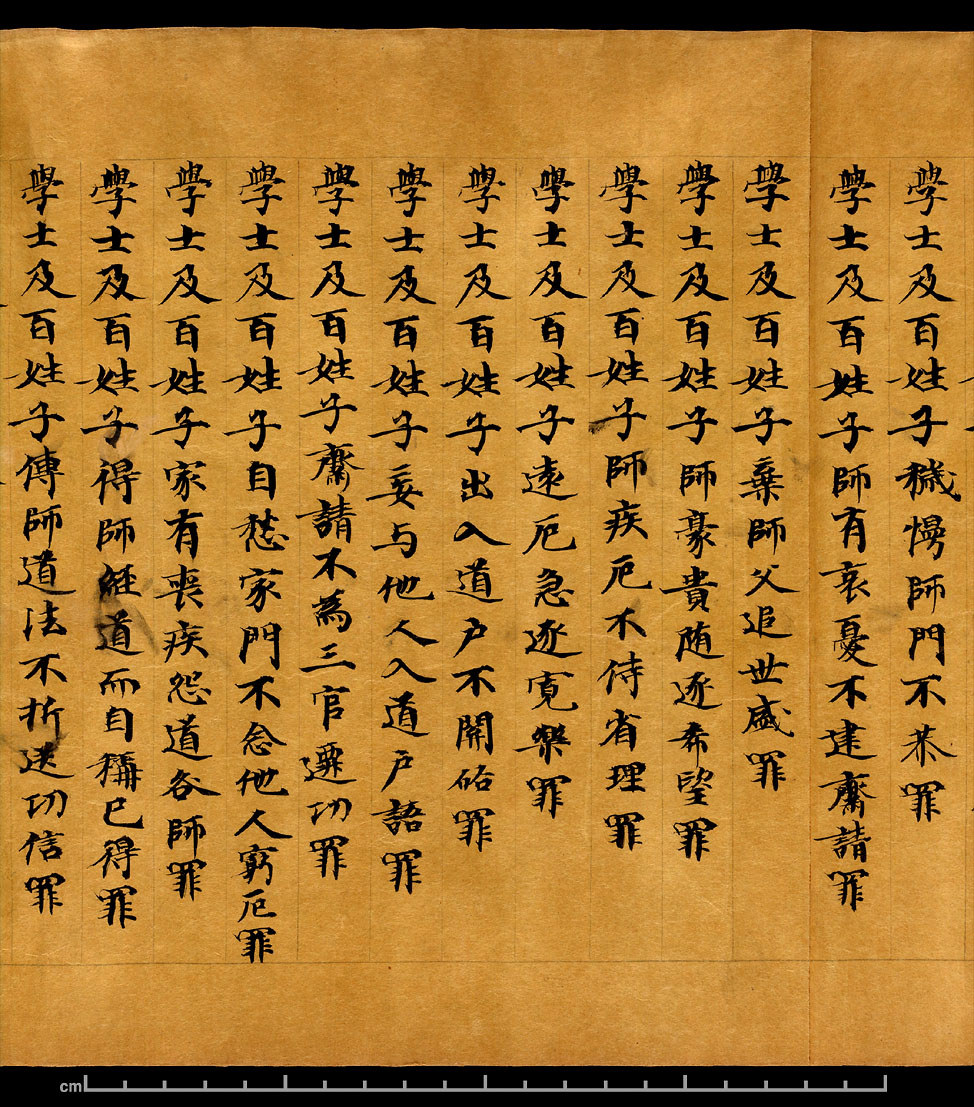 學士及百姓子穢慢師門不恭罪
學士及百姓子師有哀憂不建齋請罪
學士及百姓子棄師父追世盛罪
學士及百姓子師豪貴随逐希望罪
學士及百姓子師疾厄不侍省理罪
學士及百姓子遠厄急逐寛樂罪
學士及百姓子出入道户不開啓罪
學士及百姓子妄与他人入道户語罪
學士及百姓子齋請不為三官遷功罪
學士及百姓子自愁家門不念他人窮厄罪
學士及百姓子家有喪疾怨道咎師罪
學士及百姓子得師經道而自稱已得罪
學士及百姓子傳師道法不折送功信罪
cm